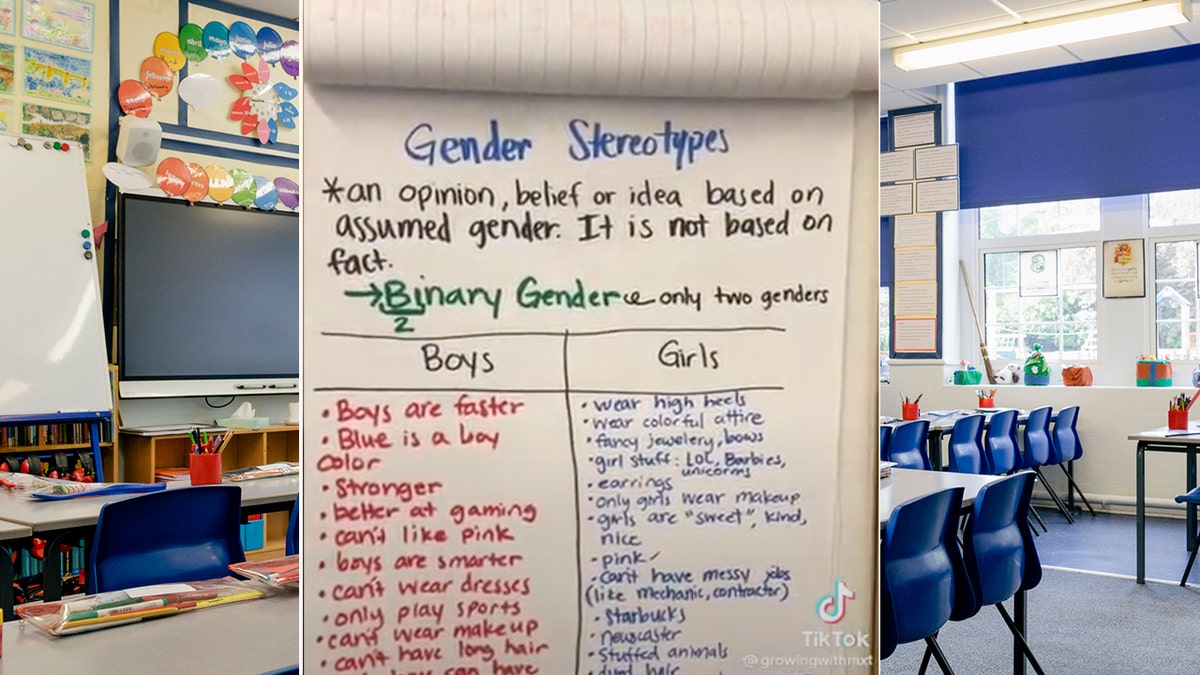 abril
mayo
junio
julio
febrero
Gender Stereotypes
*an opinion, belief or idea based on
assumed gender. It is not based on
fact.
→Binary Gender only two genders
2
Boys
Girls
• Boys are faster
• Blue is a boy
color
• Stronger
• better at gaming
• can't like pink
• boys are smarter
• can't wear dresses
• only play sports
• can't wear makeup
• can't have long hair
can have
• wear high heels
• wear colorful attire
• fancy jewelery, bows
• girl stuff: LOL, Barbies,
unicorns
• earrings
• only girls wear makeup
• girls are "sweet", kind,
nice
• pink
• can't have messy jobs
(like mechanic, contractor)
• Starbucks
• newscaster
• Stuffed animals
hair
TikTok
@growingwithmxt